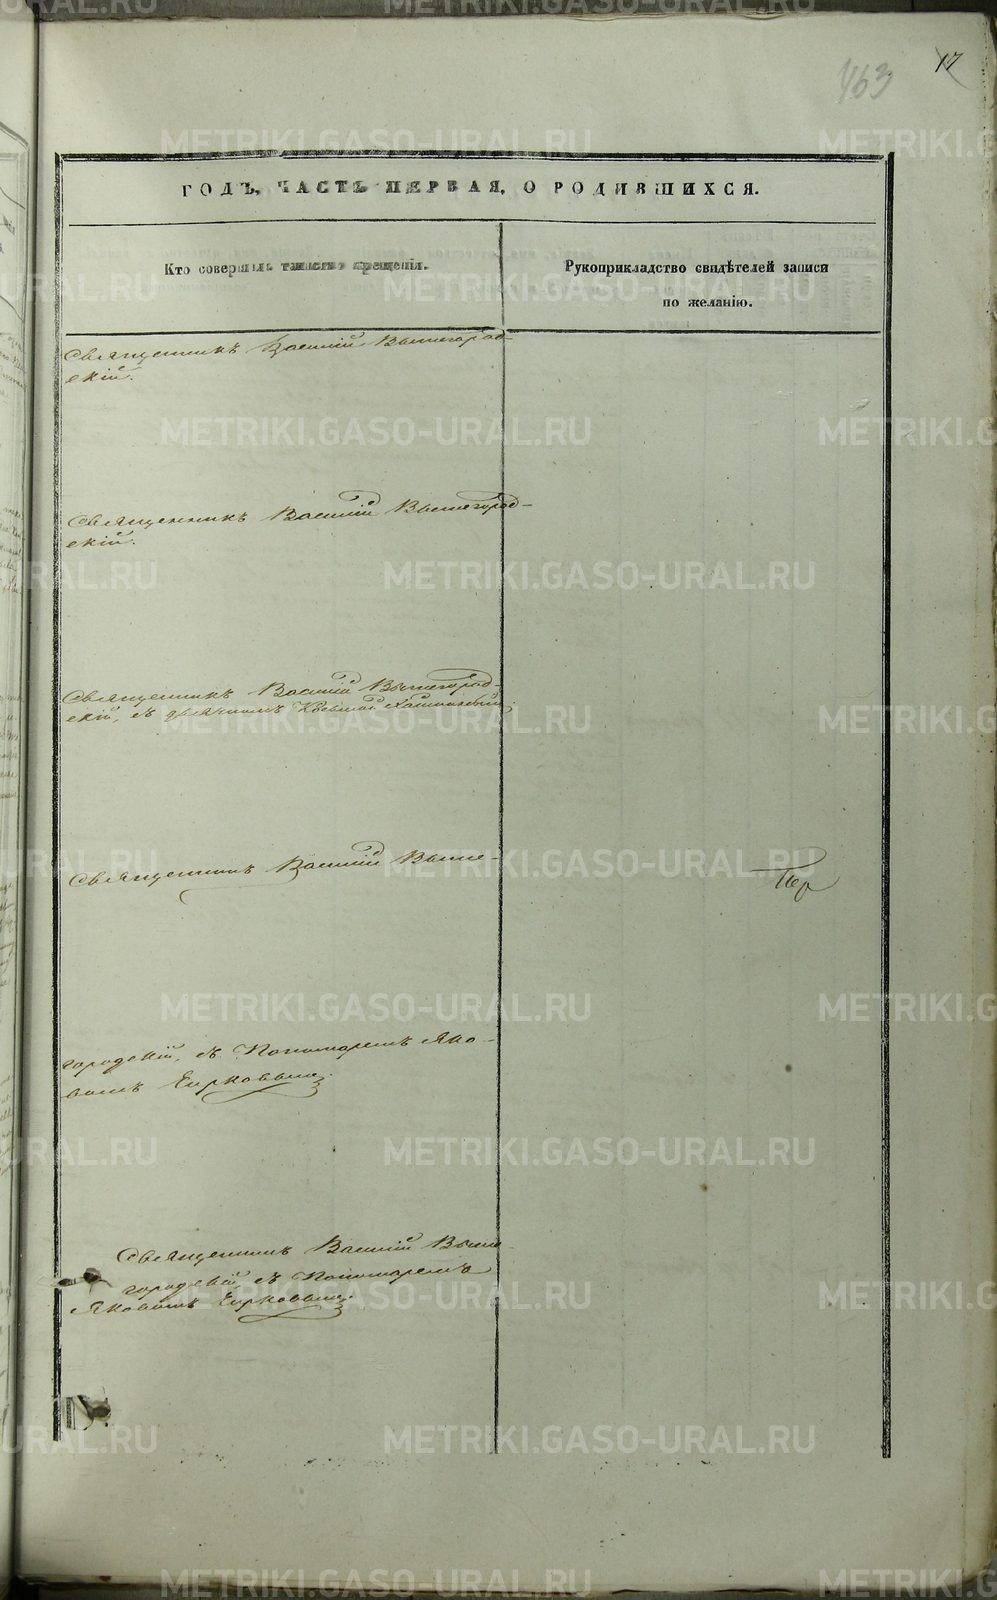 463
17
ГОДЪ, ЧАСТЬ ПЕРВАЯ, О РОДИВШИХСЯ.
Кто совершалъ таинство крещенія.
Рукоприкладство свидѣтелей записи
по желанію.
Священникъ Василій Вышегород-
скій.
Священникъ Василій Вышегород-
скій.
Священникъ Василій Вышегород-
скій, съ дьячкомъ
Священникъ Василій Выше-
городскій, съ Пономаремъ Яко-
вомъ
Священникъ Василій Выше-
городскій, съ Пономаремъ
Яковомъ
METRIKI.GASO-URAL.RU